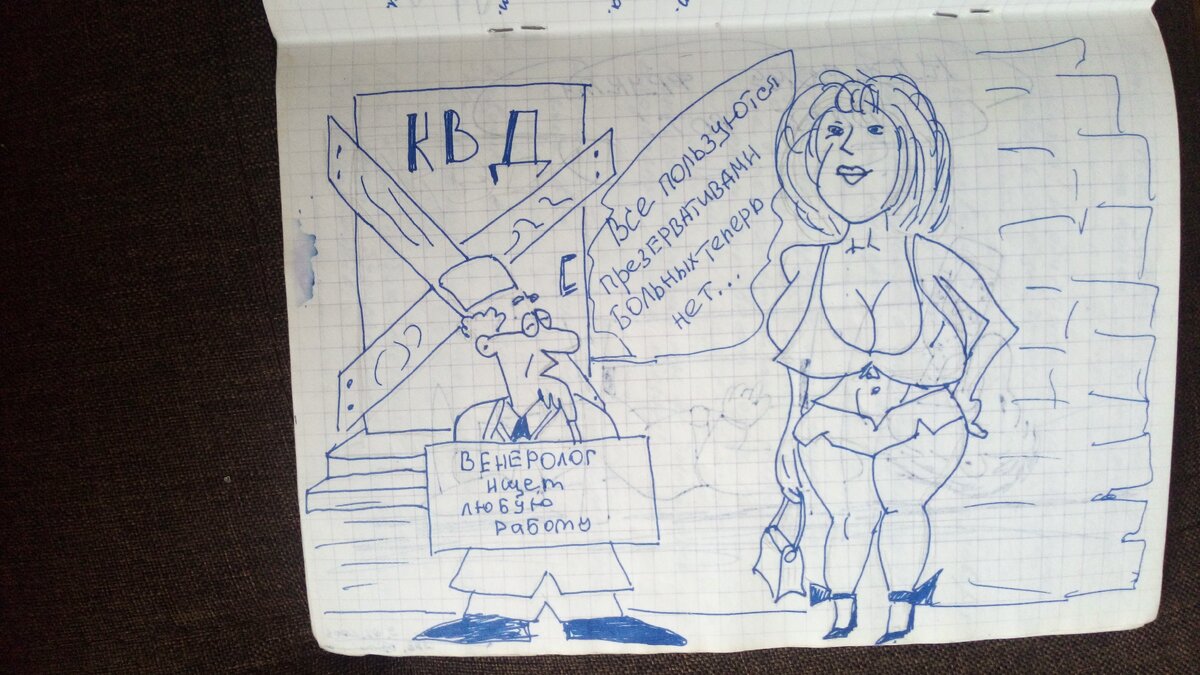 КВД
ВСЕ ПОЛЬЗУЮТСЯ
ПРЕЗЕРВАТИВАМИ
БОЛЬНЫХ-ТЕПЕРЬ
НЕТ...
ВЕНЕРОЛОГ
ищет
ЛЮБУЮ
работу